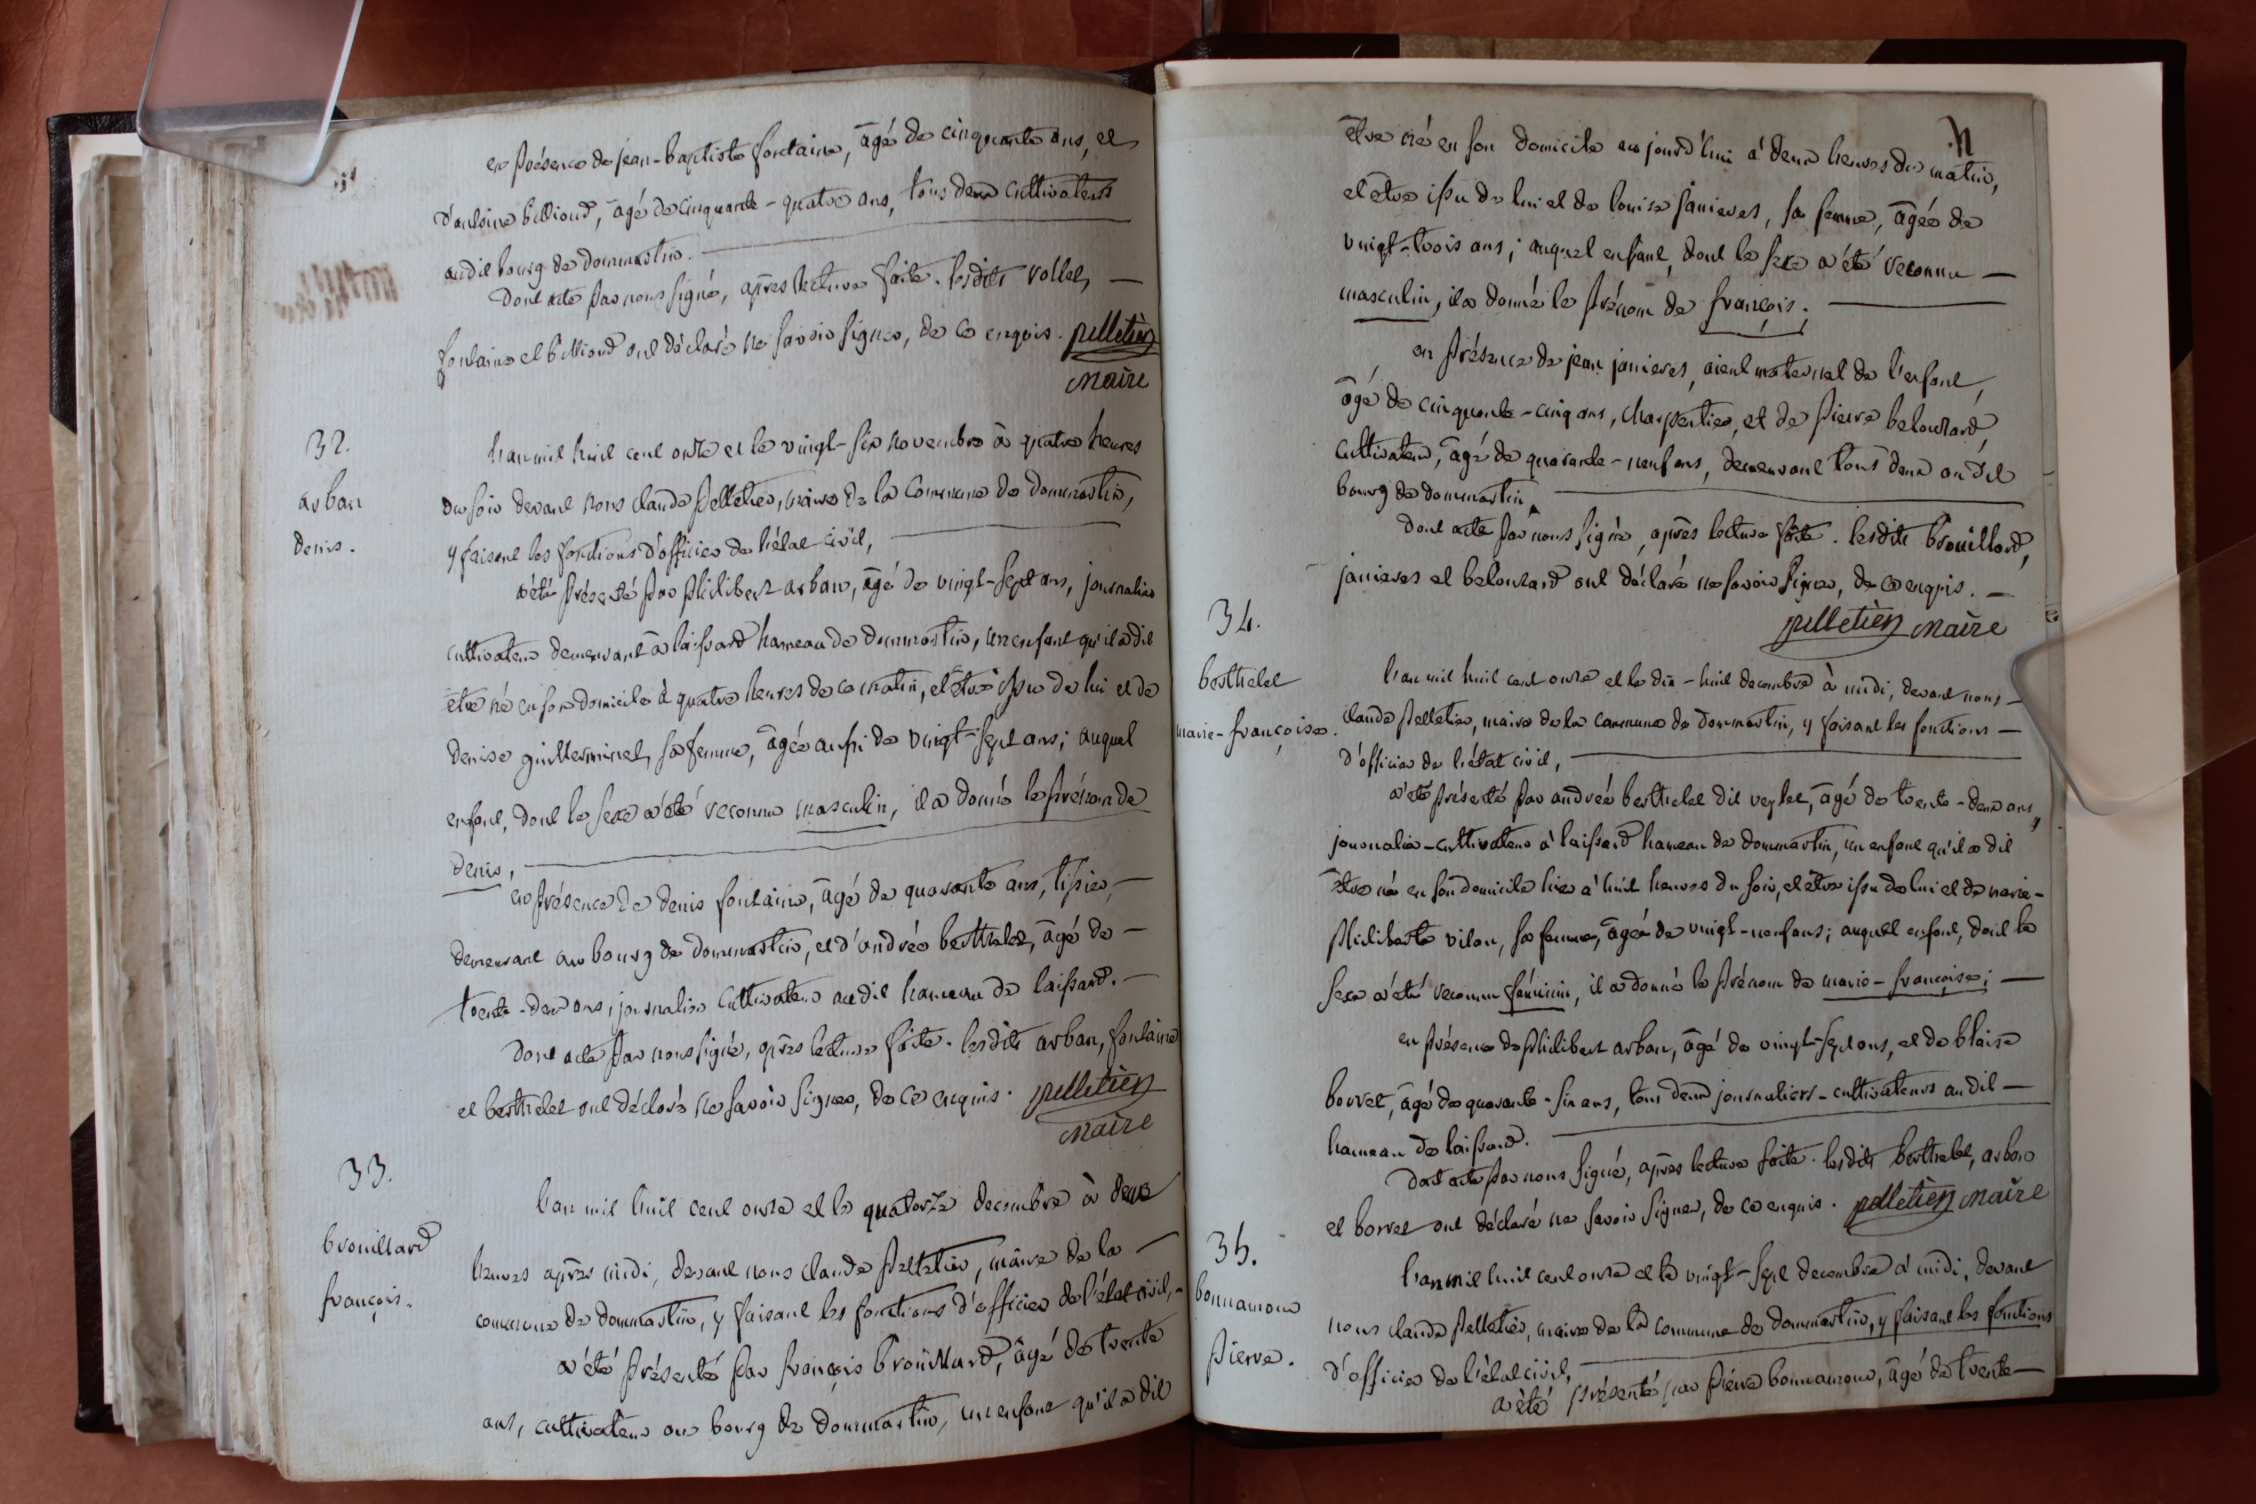 en présence de jean-baptiste fontaine, âgé de cinquante ans, et
d'antoine billioud, âgé de cinquante-quatre ans, tous deux cultivateurs
audit bourg de dommartin.
Dont acte par nous signé, après lecture faite. lesdits vollet,
fontaine et billioud ont déclaré ne savoir signer, de ce enquis. pelletier
maire
32.
arban
denis.
L'an mil huit cent onze et le vingt-six novembre à quatre heures
du soir devant nous claude pelletier, maire de la commune de dommartin,
y faisant les fonctions d'officier de l'état civil,
a été présenté par philibert arban, âgé de vingt-sept ans, journalier
cultivateur demeurant à laissard hameau de dommartin, un enfant qu'il a dit
être né en son domicile à quatre heures de ce matin, et être issu de lui et de
denise guillerminet, sa femme, âgée aussi de vingt-sept ans; auquel
enfant, dont le sexe a été reconnu masculin, il a donné le prénom de
denis,
en présence de denis fontaine, âgé de quarante ans, tissier,
demeurant au bourg de dommartin, et d'andrée berthelet, âgé de
trente-deux ans, journalier cultivateur audit hameau de laissard.
Dont acte par nous signé, après lecture faite. lesdits arban, fontaine
et berthelet ont déclaré ne savoir signer, de ce enquis. pelletier
maire
33.
brouillard
françois.
L'an mil huit cent onze et le quatorze decembre à deux
heures après midi, devant nous claude pelletier, maire de la
commune de dommartin, y faisant les fonctions d'officier de l'état civil,
a été présenté par françois brouillard, âgé de trente
ans, cultivateur au bourg de dommartin, un enfant qu'il a dit
être né en son domicile aujourd'hui à deux heures du matin,
et être issu de lui et de louise janieres, sa femme, âgée de
vingt-trois ans; auquel enfant, dont le sexe a été reconnu
masculin, il a donné le prénom de françois;
en présence de jean janieres, aieul maternel de l'enfant,
âgé de cinquante-cinq ans, charpentier, et de pierre belouzard,
cultivateur, âgé de quarante-neuf ans, demeurant tous deux audit
bourg de dommartin.
Dont acte par nous signé, après lecture faite. lesdits brouillard,
janieres et belouzard ont déclaré ne savoir signer, de ce enquis.
pelletier maire
34.
berthelet
marie-françoise.
L'an mil huit cent onze et le dix-huit decembre à midi, devant nous
claude pelletier, maire de la commune de dommartin, y faisant les fonctions
d'officier de l'état civil,
a été présenté par andrée berthelet dit veylet, âgé de trente-deux ans,
journalier-cultivateur à laissard hameau de dommartin, un enfant qu'il a dit
être né en son domicile hier à huit heures du soir, et être issu de lui et de marie-
philiberte vilon, sa femme, âgée de vingt-neuf ans; auquel enfant, dont le
sexe a été reconnu féminin, il a donné le prénom de marie-françoise;
en présence de philibert arban, âgé de vingt-sept ans, et de blaise
borret, âgé de quarante-six ans, tous deux journaliers-cultivateurs audit
hameau de laissard.
Dont acte par nous signé, après lecture faite. lesdits berthelet, arban
et borret ont déclaré ne savoir signer, de ce enquis. pelletier maire
35.
bonnamour
pierre.
L'an mil huit cent onze et le vingt-sept decembre à midi, devant
nous claude pelletier, maire de la commune de dommartin, y faisant les fonctions
d'officier de l'état civil,
a été présenté par pierre bonnamour, âgé de trente